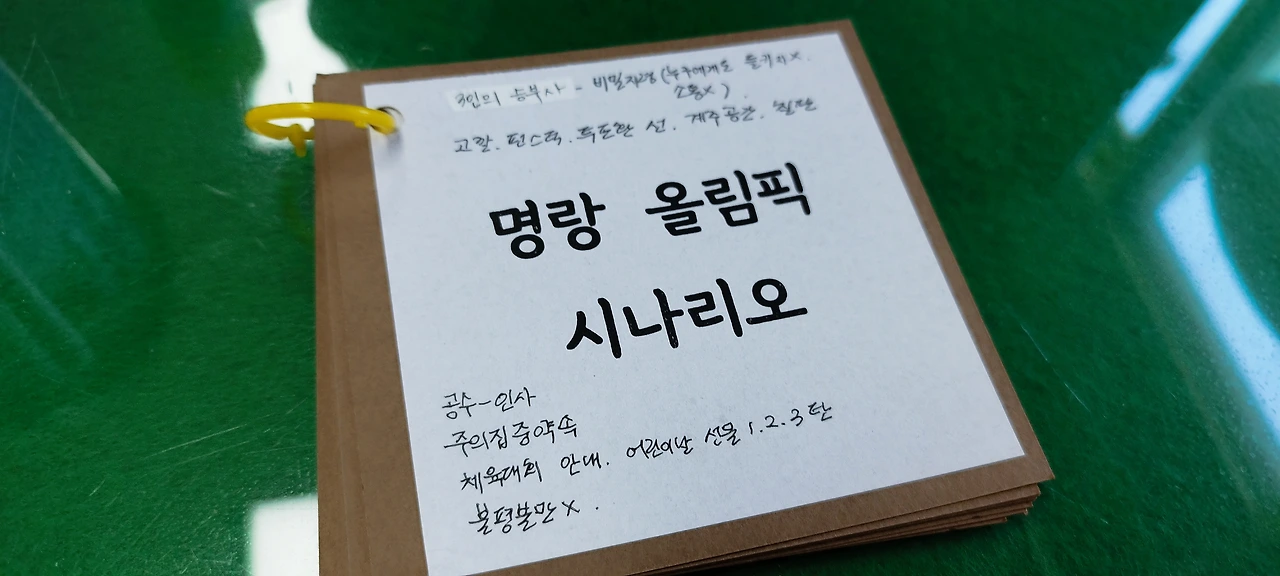 3인의 승부사 - 비밀지령 (누구에게도 들키지 X.
소통X).
고깔. 펀스틱. 투포환 선. 계주공간. 칠판
명랑 올림픽
시나리오
공수-인사
주의집중약속
체육대회 안내. 어린이날 선물 1.2.3탄
불평불만 X.